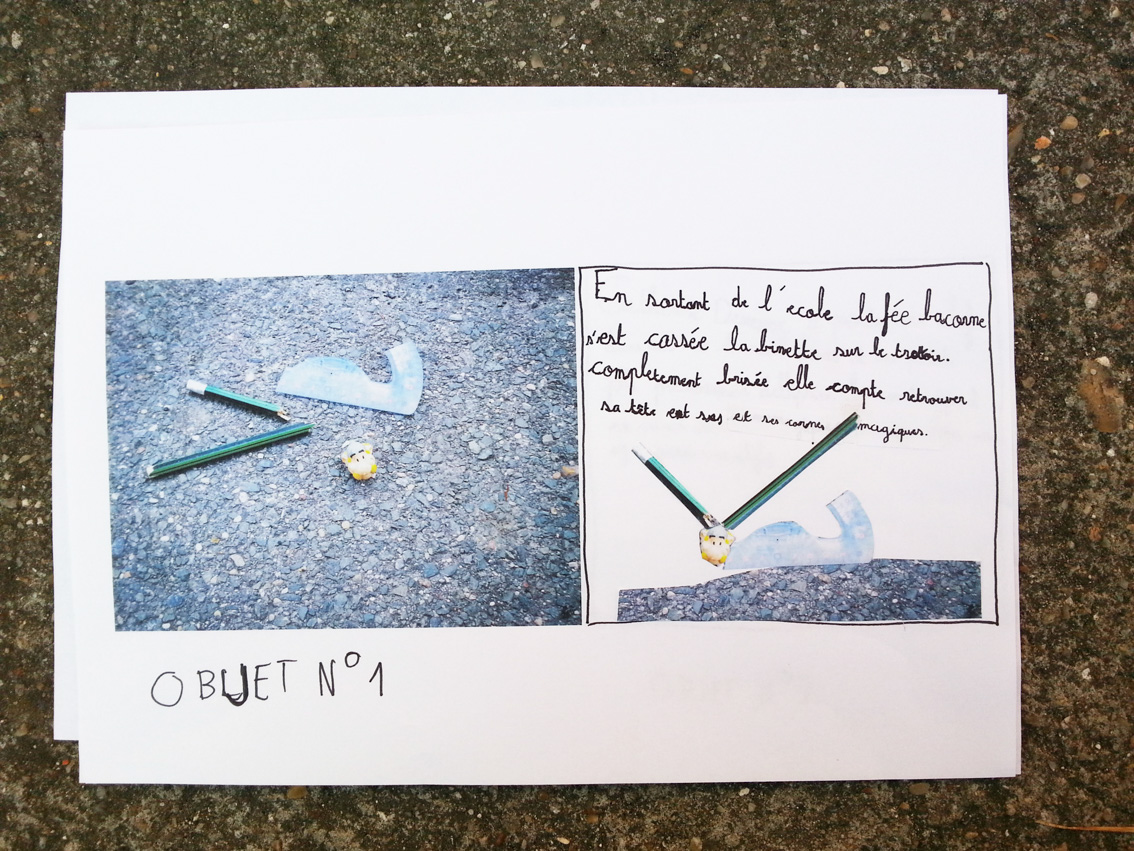 En sortant de l'école la fée bacorne
s'est cassée la binette sur le trottoir.
complètement brisée elle compte retrouver
sa tête et ses cornes magiques.
OBJET N°1